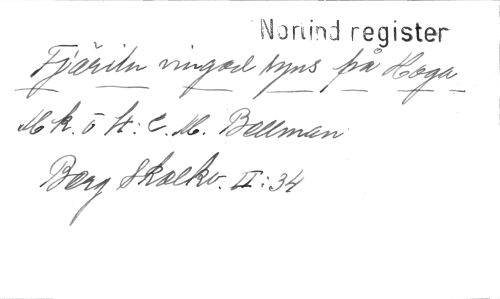 Norlind register
Fjäriln vingad syns på Haga
Mk. o t: C. M. Bellman
Berg Skolkv. II:34